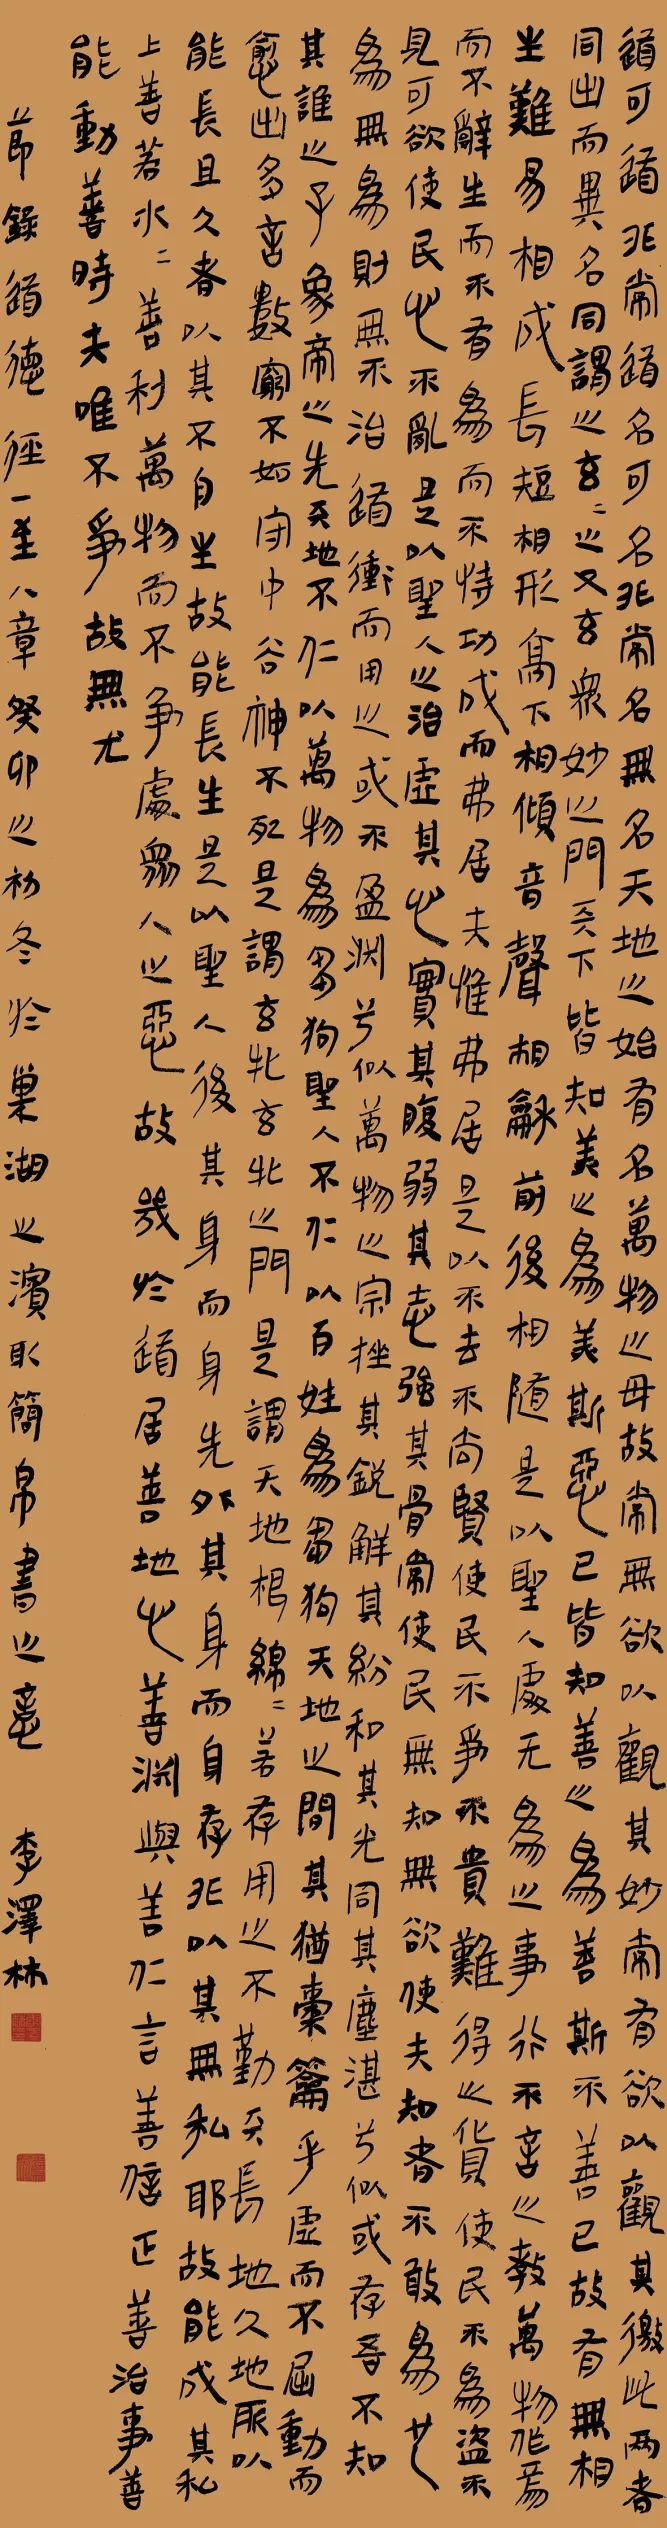 道可道非常道名可名非常名無名天地之始有名萬物之母故常無欲以觀其妙常有欲以觀其徼此兩者
同出而異名同謂之玄〻之又玄眾妙之門天下皆知美之為美斯惡已皆知善之為善斯不善已故有無相
生難易相成長短相形高下相傾音聲相龢前後相隨是以聖人處无為之事行不言之教萬物作焉
而不辭生而不有為而不恃功成而弗居夫惟弗居是以不去不尚賢使民不爭不貴難得之貨使民不為盜不
見可欲使民心不亂是以聖人之治虛其心實其腹弱其志強其骨常使民無知無欲使夫知者不敢為也
為無為則無不治道衝而用之或不盈淵兮似萬物之宗挫其銳解其紛和其光同其塵湛兮似或存吾不知
其誰之子象帝之先天地不仁以萬物為芻狗聖人不仁以百姓為芻狗天地之間其猶橐籥乎虛而不屈動而
愈出多言數窮不如守中谷神不死是謂玄牝玄牝之門是謂天地根綿〻若存用之不勤天長地久地所以
能長且久者以其不自生故能長生是以聖人後其身而身先外其身而自存非以其無私耶故能成其私
上善若水〻善利萬物而不爭處眾人之惡故幾於道居善地心善淵與善仁言善信正善治事善
能動善時夫唯不爭故無尤
節錄道德經一至八章癸卯之初冬於巢湖之濱取簡帛書之意 李澤林